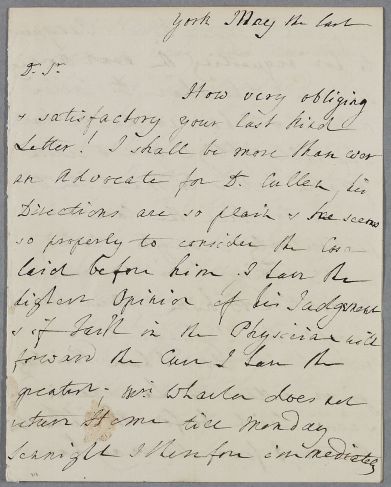 York May the last
Dr. Sr.
How very obliging
& satisfactory your last kind
Letter! I shall be more than ever
an Advocate for D. Cullen, his
Directions are so plain & he seems
so properly to consider the Case
laid before him. I have the
highest Opinion of his Judgement
& if Faith in the Physician will
forward the Cure I have the
greatest. Mrs Wharton does not
return Home till Monday
Sennight I therefore immediately